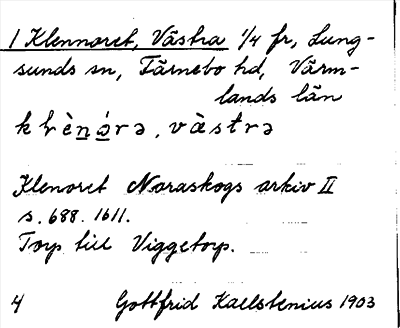 1 Klennoret, Västra 1/4 fr, Lung-
sunds sn, Färnebo hd, Värm-
lands län
klènǻrə, vàstrə
Klenoret Noraskogs arkiv II
s. 688. 1611.
Torp till Viggetorp.
4 Gottfrid Kallstenius 1903